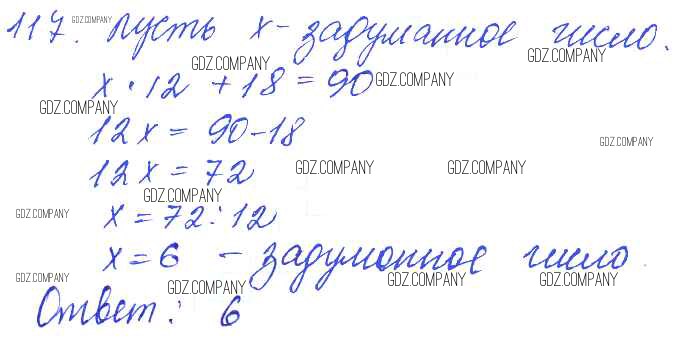 117. Пусть x - задуманное число.
GDZ.COMPANY
GDZ.COMPANY GDZ.COMPANY
x · 12 + 18 = 90 GDZ.COMPANY
GDZ.COMPANY
12x = 90 - 18 GDZ.COMPANY
12x = 72 GDZ.COMPANY GDZ.COMPANY
GDZ.COMPANY
GDZ.COMPANY x = 72 : 12
x = 6 - задуманное число.
GDZ.COMPANY GDZ.COMPANY GDZ.COMPANY GDZ.COMPANY
Ответ: 6